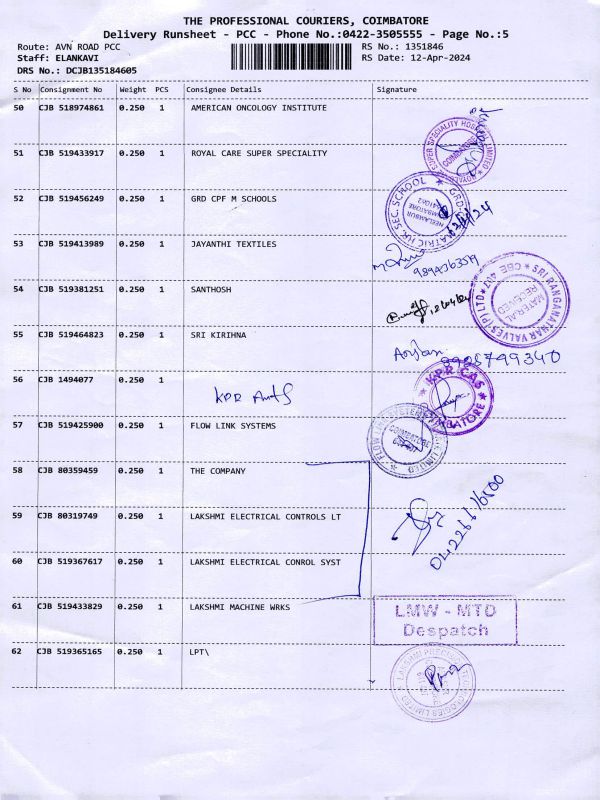 THE PROFESSIONAL COURIERS, COIMBATORE
Delivery Runsheet - PCC - Phone No.:0422-3505555 - Page No.:5
Route: AVN ROAD PCC RS No.: 1351846
Staff: ELANKAVI RS Date: 12-Apr-2024
DRS No.: DCJB135184605
S No Consignment No Weight PCS Consignee Details Signature
50 CJB 518974861 0.250 1 AMERICAN ONCOLOGY INSTITUTE
51 CJB 519433917 0.250 1 ROYAL CARE SUPER SPECIALITY
SUPER SPECIALITY
COIMBATORE
52 CJB 519456249 0.250 1 GRD CPF M SCHOOLS
SEC. SCHOOL
NEELAMBUR
53 CJB 519413989 0.250 1 JAYANTHI TEXTILES
54 CJB 519381251 0.250 1 SANTHOSH
SRI RANGANATHAR VALVES (P) LTD
MATERIAL
RECEIVED
55 CJB 519464823 0.250 1 SRI KIRIHNA
56 CJB 1494077 0.250 1
KPR
KPR GAS
COIMBATORE
57 CJB 519425900 0.250 1 FLOW LINK SYSTEMS
COIMBATORE
58 CJB 80359459 0.250 1 THE COMPANY
59 CJB 80319749 0.250 1 LAKSHMI ELECTRICAL CONTROLS LT
60 CJB 519367617 0.250 1 LAKSHMI ELECTRICAL CONROL SYST
61 CJB 519433829 0.250 1 LAKSHMI MACHINE WRKS
LMW - MTD
Despatch
62 CJB 519365165 0.250 1 LPT\